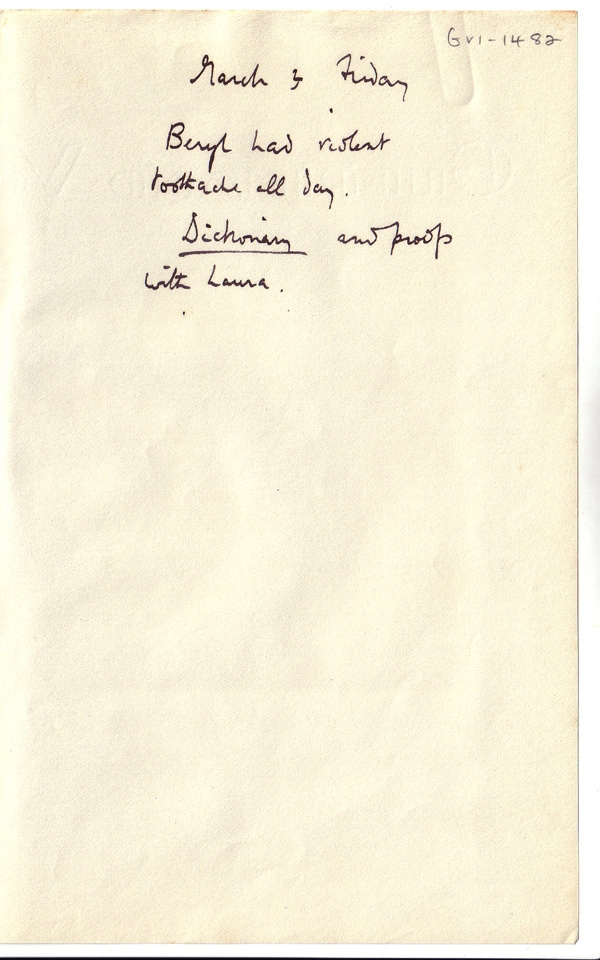 GVI-1482
March 3 Friday
Beryl had violent
toothache all day.
Dictionary and proofs
with Laura.